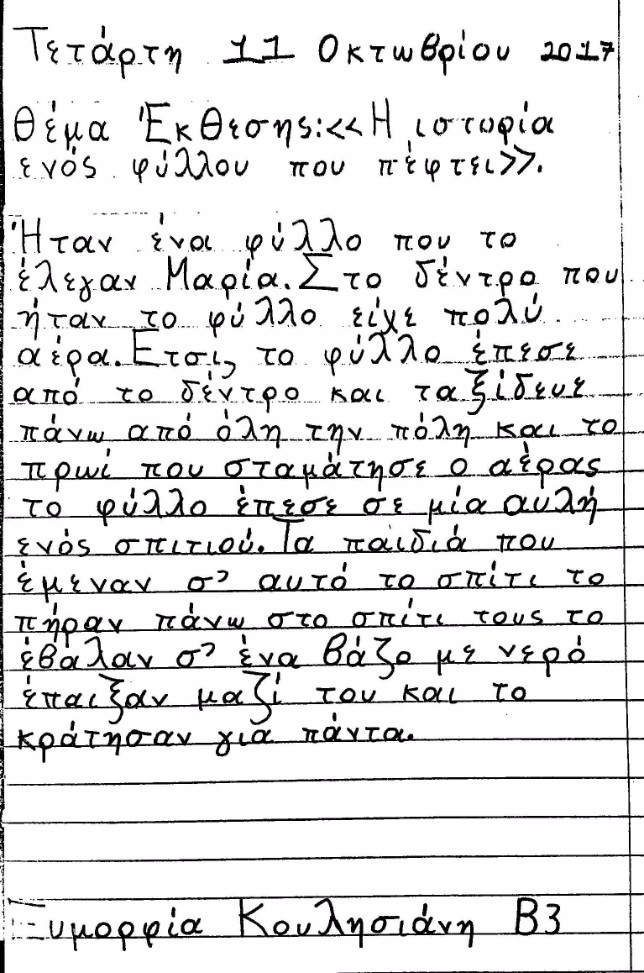 Τετάρτη 11 Οκτωβρίου 2017
Θέμα Έκθεσης:<<Η ιστορία
ενός φύλλου που πέφτει>>.
Ήταν ένα φύλλο που το
έλεγαν Μαρία. Στο δέντρο που
ήταν το φύλλο είχε πολύ
αέρα. Έτσι, το φύλλο έπεσε
από το δέντρο και ταξίδευε
πάνω από όλη την πόλη και το
πρωί που σταμάτησε ο αέρας
το φύλλο έπεσε σε μία αυλή
ενός σπιτιού. Τα παιδιά που
έμεναν σ' αυτό το σπίτι το
πήραν πάνω στο σπίτι τους το
έβάλαν σ' ένα βάζο με νερό
έπαιξαν μαζί του και το
κράτησαν για πάντα.
Ευμορφία Κουλησιάνη Β3